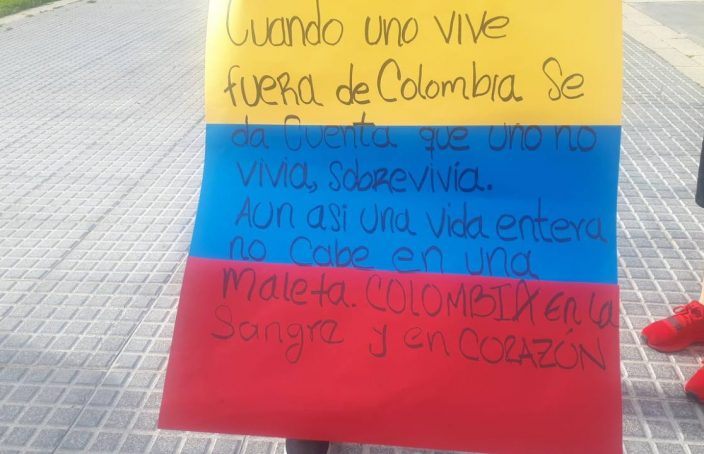 Cuando uno vive
fuera de Colombia Se
da Cuenta que uno no
vivia, sobrevivía.
Aun asi una vida entera
no Cabe en una
Maleta. COLOMBIA En la
Sangre y en CORAZÓN